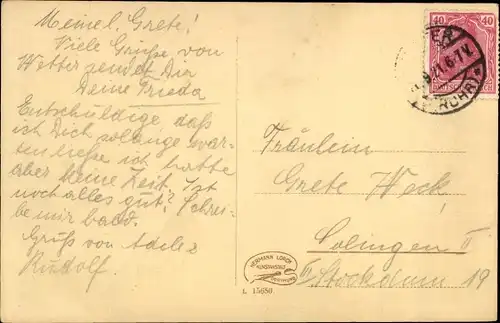 Meine l. Grete!
Viele Grüße von
Wetter sendet Dir
Deine Frieda
Entschuldige daß
ich Dich solange war-
ten ließe ich hatte
aber keine Zeit. Ist
noch alles gut? Schrei-
be mir bald.
Gruß von Adele &
Rudolf.
40 40
(RUHR)*
Fräulein
Grete Weck
Solingen II
III Stockdum 19
HERMANN LORCH
KUNSTANSTALT
DORTMUND
L 15656